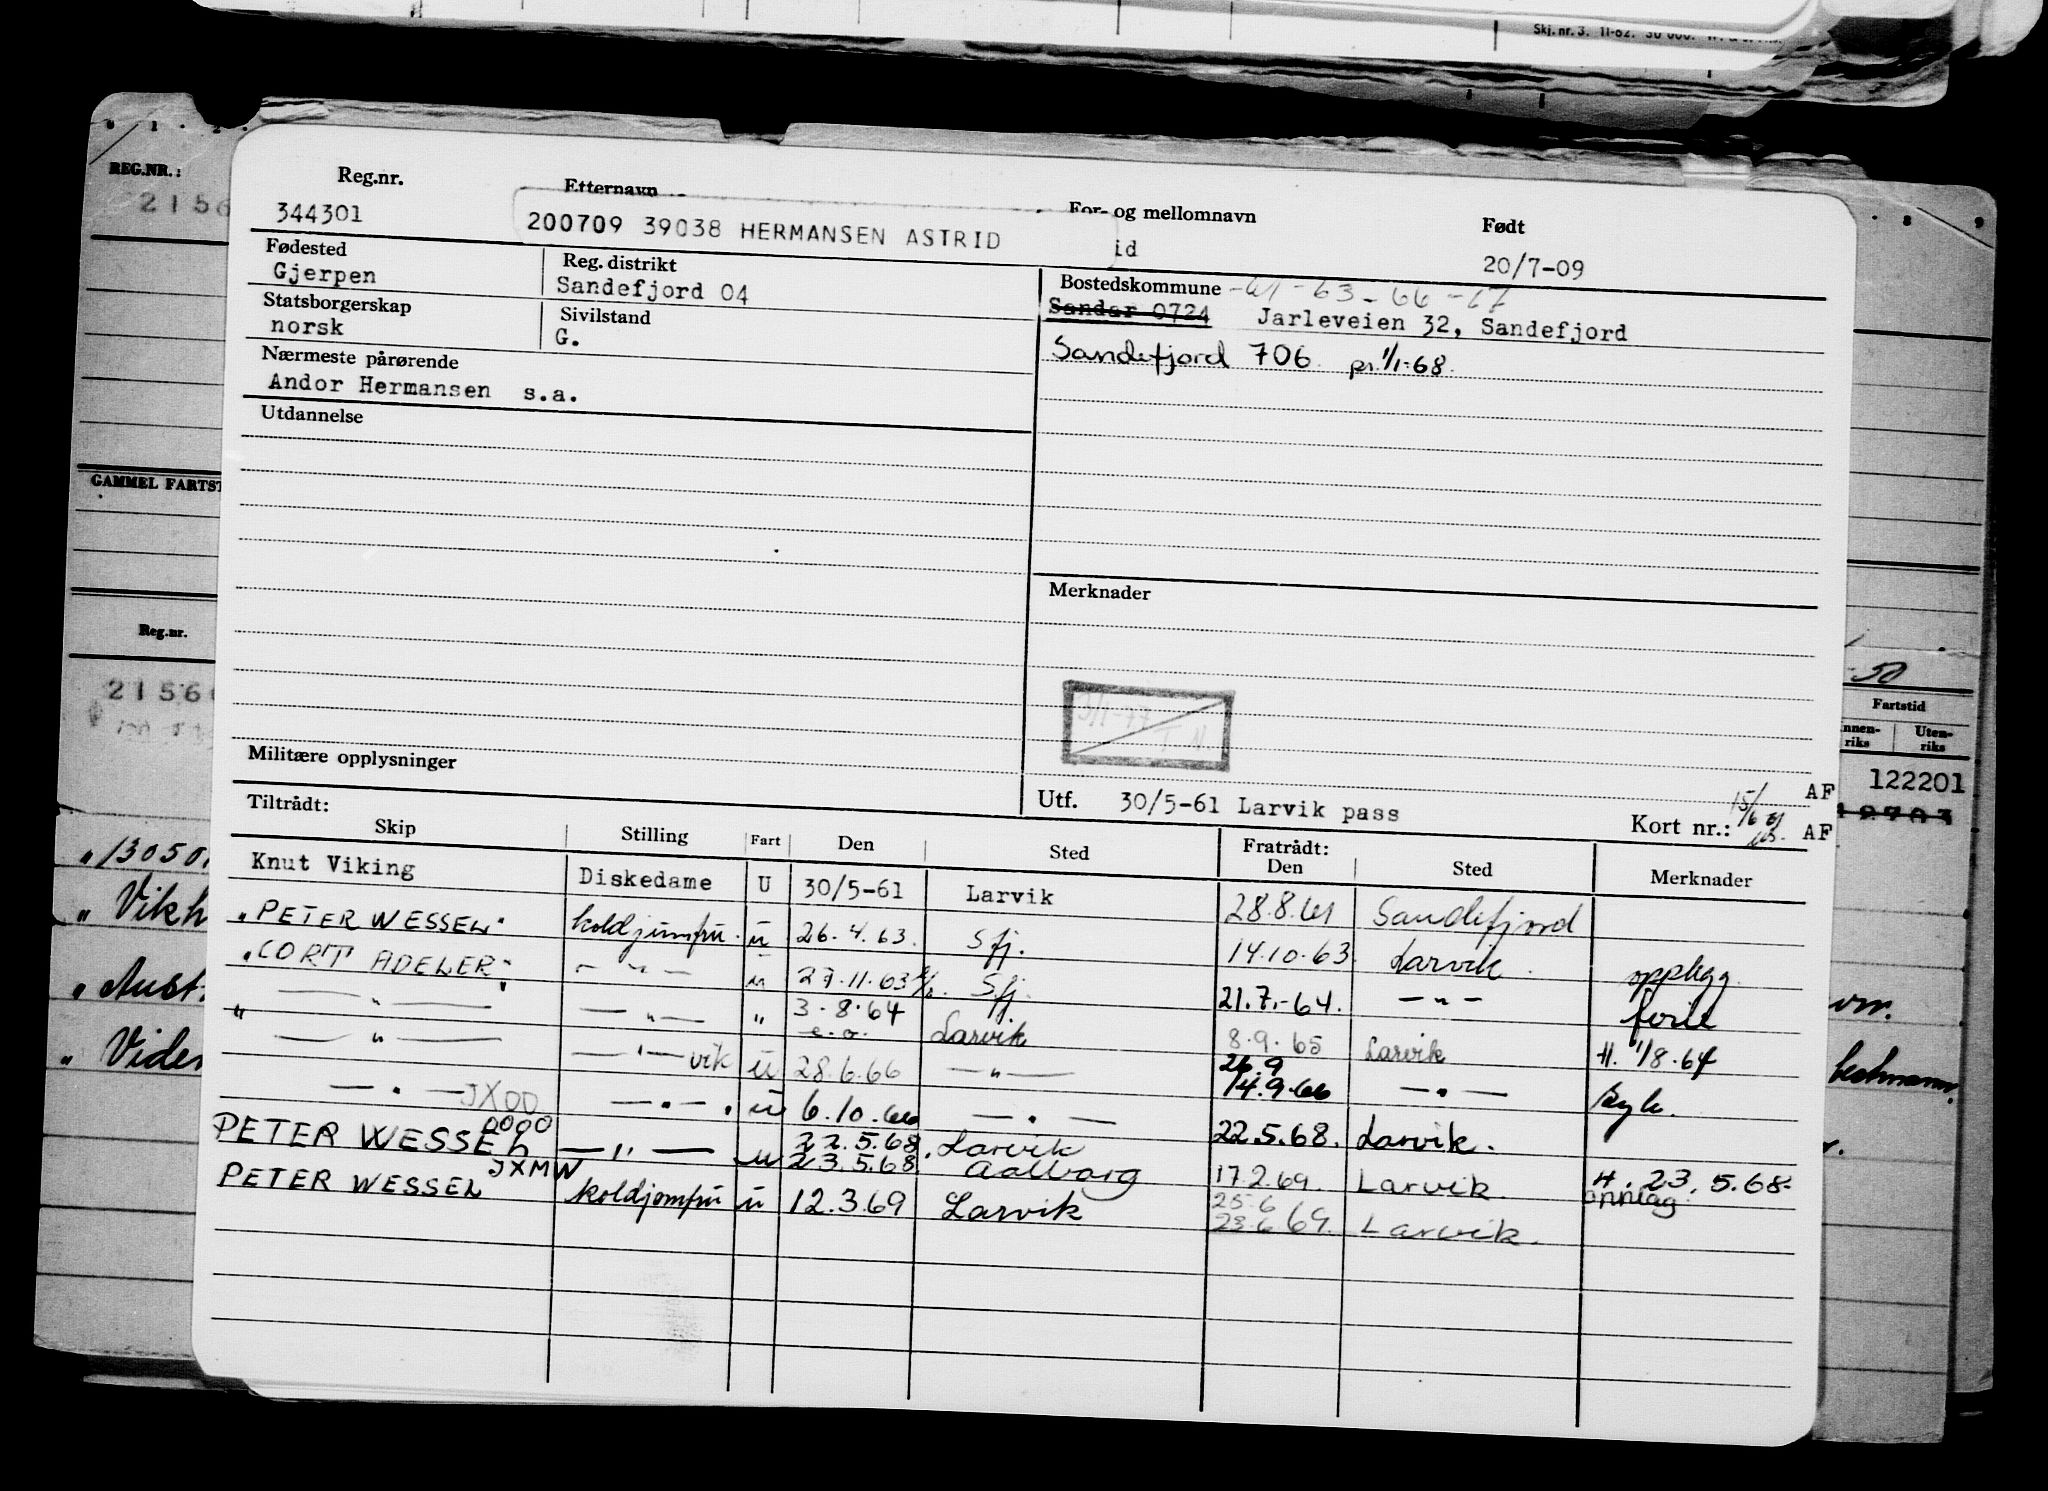 Skj. nr. 3. 11-62. 30 000.
0 1 2
8 9
REG.NR.:
2156
GAMMEL FARTST
Reg.nr.
2156
"13050.
"Vikh
"Aust
"Viden
50
Fartstid
nnen-riks Uten-riks
122201
Reg.nr. Etternavn For- og mellomnavn Født
344301 200709 39038 HERMANSEN ASTRID id 20/7-09
Fødested Reg. distrikt Bostedskommune -61-63-66-67
Gjerpen Sandefjord 04 Sandar 0724 Jarleveien 32, Sandefjord
Statsborgerskap Sivilstand
norsk G. Sandefjord 706. pr. 1/1-68.
Nærmeste pårørende
Andor Hermansen s.a.
Utdannelse
Merknader
3/1-77
T N.
Militære opplysninger
Utf. 30/5-61 Larvik pass Kort nr.: 15/6 61 AF
AF
Tiltrådt: Fratrådt:
Skip Stilling Fart Den Sted Den Sted Merknader
Knut Viking Diskedame U 30/5-61 Larvik 28.8.61 Sandefjord
"PETER WESSEL" koldjomfru. u 26.4.63. Sfj. 14.10.63. Larvik. opplegg.
"CORT ADELER" — " — u 27.11.63 Sfj. 21.7.-64. — " — ferie
" — " — — " — " 3.8.64 e.o. Larvik 8.9.65 Larvik H. 1/8.64
— " — — " — vik u 28.6.66 — " — 26.9 14.9.66 — " — syk.
— " — JXOO — " — u 6.10.66 — " — 22.5.68. Larvik.
PETER WESSEL — " — u 22.5.68. 23.5.68 Larvik Aalborg 17.2.69. Larvik H. 23.5.68. opplag
PETER WESSEL JXMW koldjomfru u 12.3.69 Larvik 25.6 23.6.69. Larvik.